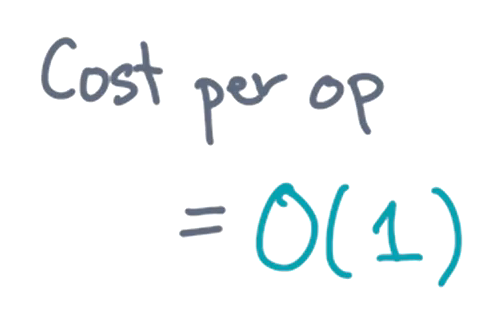 Cost per op
= O(1)